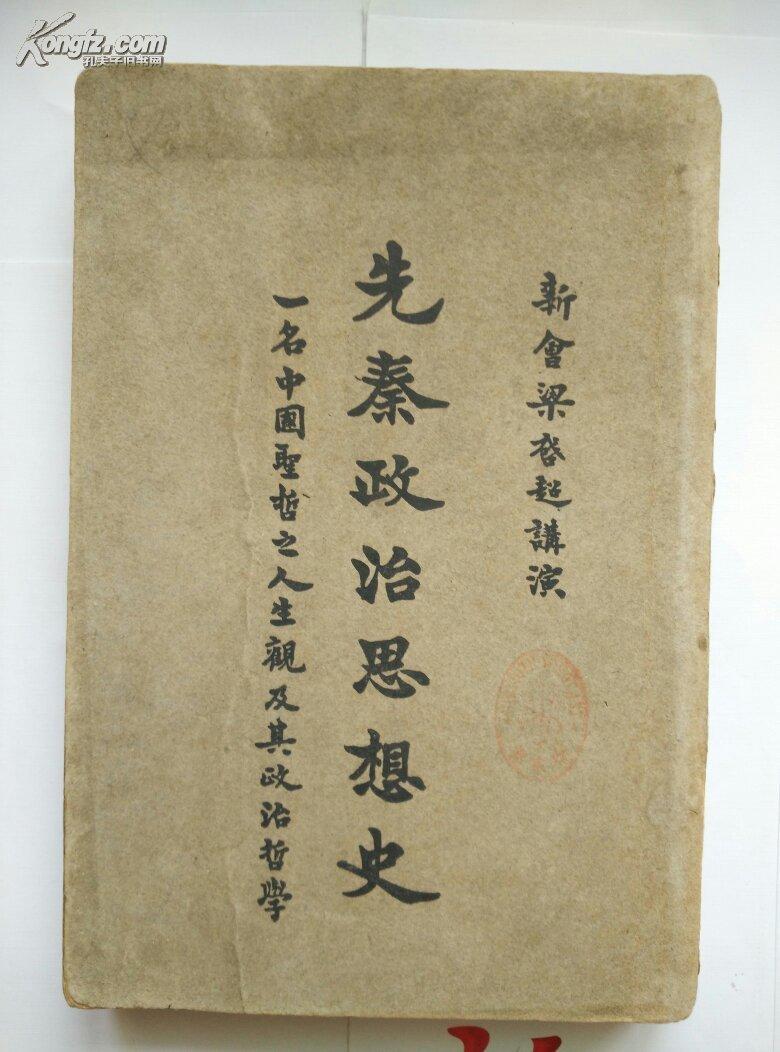 Kongfz.com
孔夫子旧书网
新會梁啓超講演
先秦政治思想史
一名中國聖哲之人生觀及其政治哲學